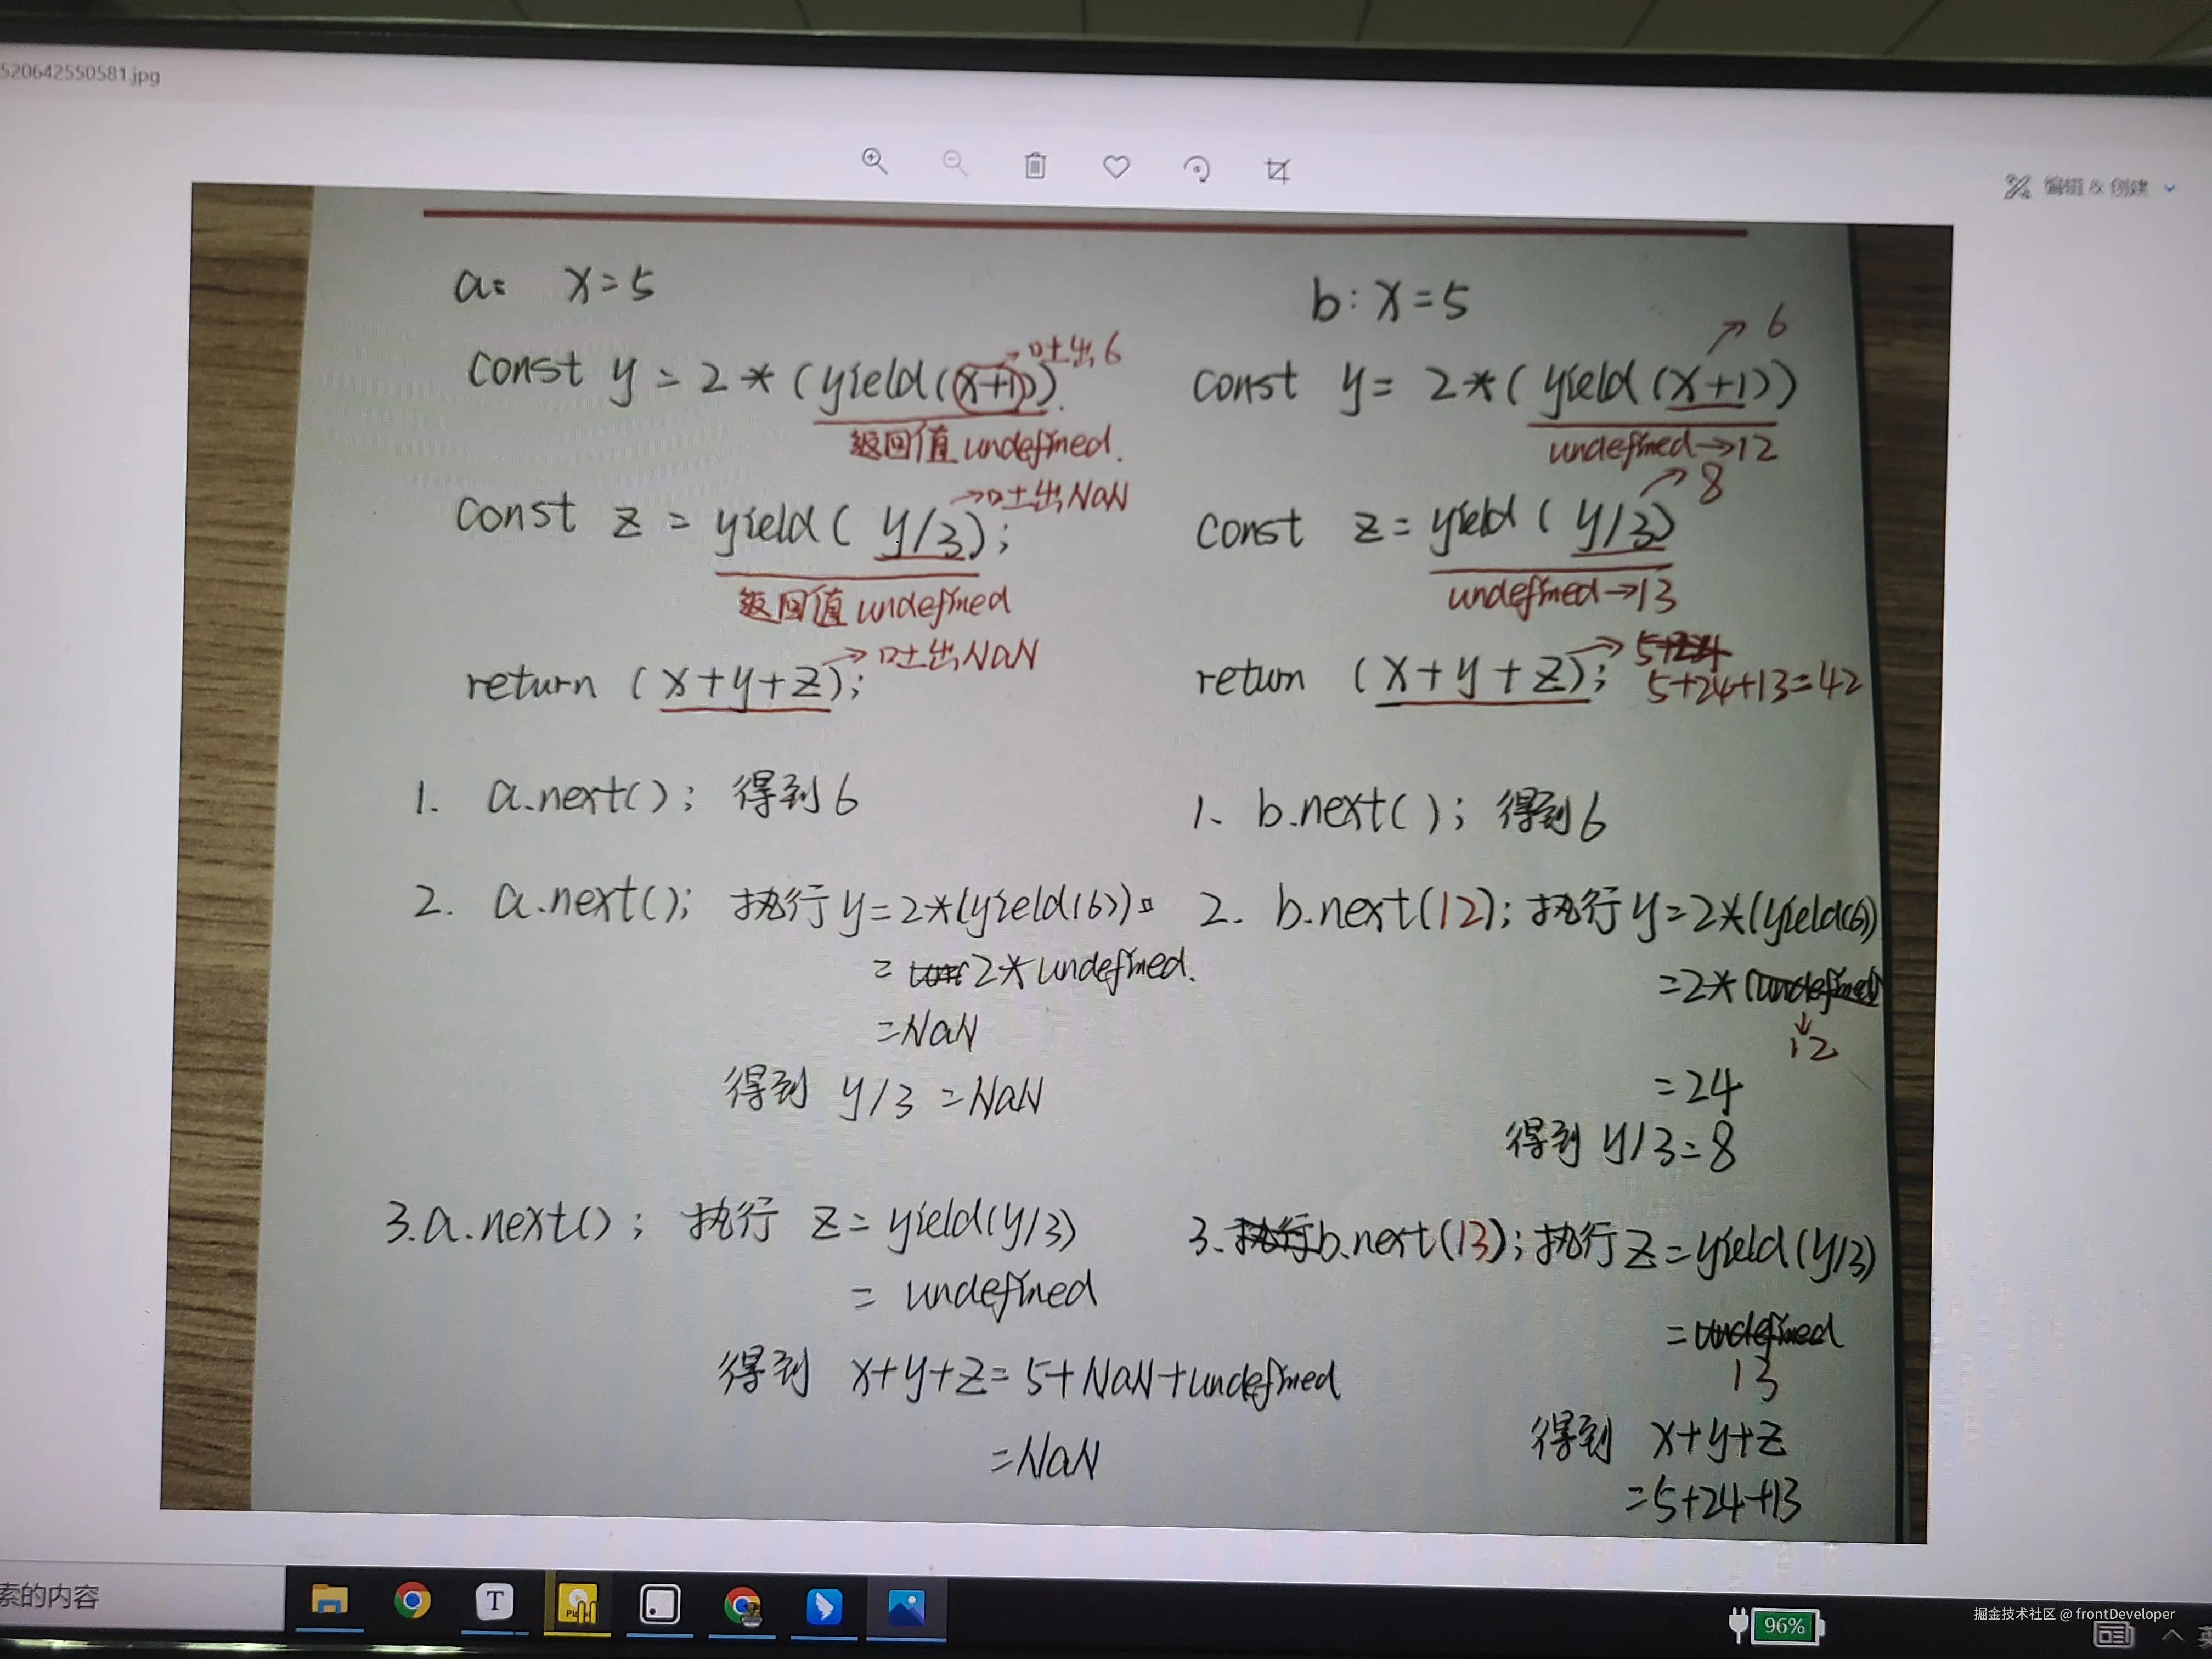 520642550581.jpg
编辑 & 创建
a: x=5
const y = 2*(yield(x+1))
吐出6
返回值 undefined.
const z = yield( y/3);
吐出NaN
返回值 undefined
return (x+y+z);
吐出NaN
1. a.next(); 得到6
2. a.next(); 执行 y=2*(yield(6))
= 2* undefined.
=NaN
得到 y/3 =NaN
3.a.next(); 执行 z= yield(y/3)
= undefined
得到 x+y+z= 5+NaN+undefined
=NaN
b: x=5
6
const y= 2*( yield(x+1))
undefined→12
8
const z= yield( y/3)
undefined→13
return (x+y+z);
5+24
5+24+13=42
1、b.next(); 得到6
2. b.next(12); 执行 y=2*(yield(6))
=2*(undefined)
12
=24
得到 y/3=8
3.执行b.next(13); 执行 z=yield(y/3)
=undefined
13
得到 x+y+z
=5+24+13
索的内容
T
96%
掘金技术社区 @ frontDeveloper
英